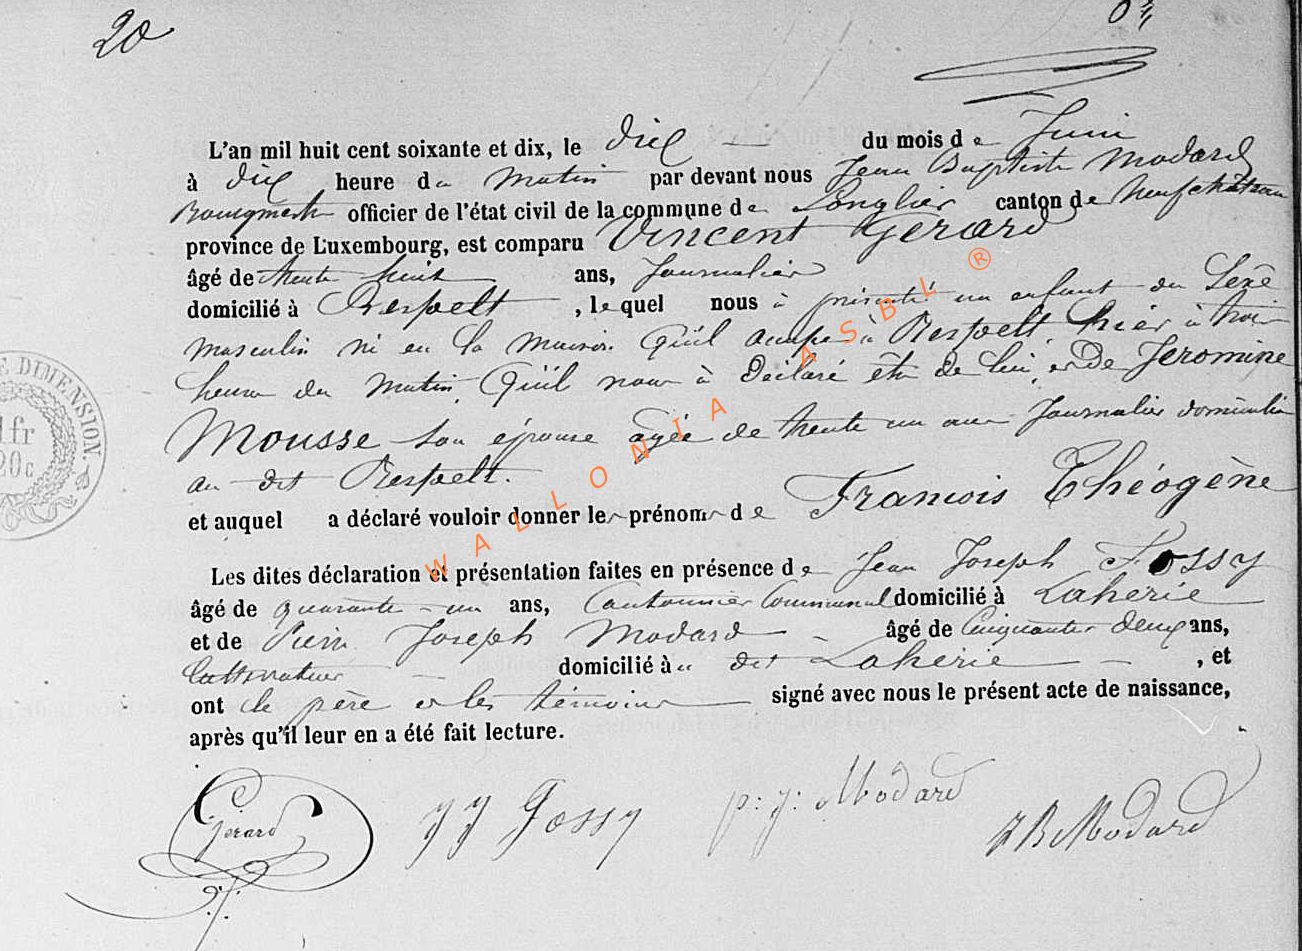 20
L'an mil huit cent soixante et dix, le dix du mois de Juin
à dix heure du matin par devant nous Jean Baptiste Modard
Bourgmestre officier de l'état civil de la commune de Longlier canton de Neufchâteau
province de Luxembourg, est comparu Vincent Gerard
âgé de trente huit ans, Journalier
domicilié à Respelt, lequel nous à présenté un enfant du Sexe
masculin né en la maison qu'il occupe à Respelt, hier à trois
heures du matin, Qu'il nous à Déclaré être de lui, et De Jeromine
Mousse son épouse agée de trente un ans Journalier domicilié
au dit Respelt.
et auquel a déclaré vouloir donner les prénoms de Francois Théogène
Les dites déclaration et présentation faites en présence de Jean Joseph Fossy
âgé de quarante un ans, Cantonnier Communal domicilié à Laherie
et de Pierre Joseph Modard âgé de Cinquante deux ans,
Cultivateur domicilié à dit Laherie, et
ont le père et les témoins signé avec nous le présent acte de naissance,
après qu'il leur en a été fait lecture.
Gerard JJ Fossy p: j: Modard JB Modard
DIMENSION.
1 fr
20c
WALLONIA ASBL ®